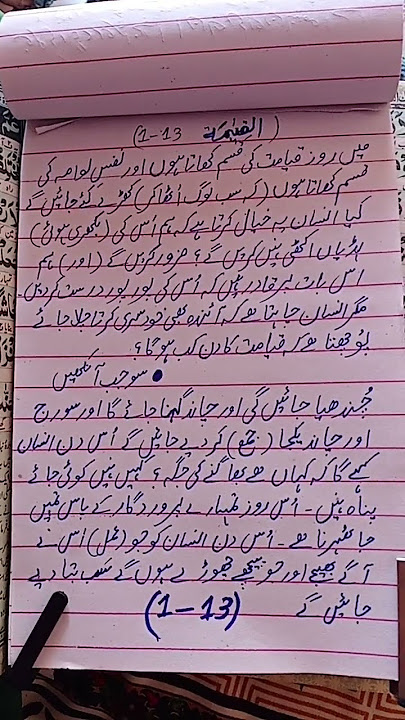 (القیٰمۃ 13-1)
میں روز قیامت کی قسم کھاتا ہوں اور نفس لوامہ کی
قسم کھاتا ہوں (کہ سب لوگ اُٹھا کر) کھڑے کئے جائیں گے
کیا انسان یہ خیال کرتا ہے کہ ہم اس کی (بکھری ہوئی)
ہڈیاں اکٹھی نہیں کریں گے؟ ضرور کریں گے (اور) ہم
اس بات پر قادر ہیں کہ اُس کی پور پور درست کر دیں۔
مگر انسان چاہتا ہے کہ آئندہ بھی خود سری کرتا چلا جائے
پوچھتا ہے کہ قیامت کا دن کب ہو گا؟
• سو جب آنکھیں
چُندھیا جائیں گی اور چاند گہنا جائے گا اور سورج
اور چاند یکجا (جمع) کر دیے جائیں گے اُس دن انسان
کہے گا کہ کہاں ہے بھاگنے کی جگہ؟ کہیں نہیں کوئی جائے
پناہ نہیں۔ اُس روز تمہارے پروردگار کے پاس تمہیں
جا ٹھہرنا ہے۔ اُس دن انسان کو جو (عمل) اس نے
آگے بھیجے اور جو پیچھے چھوڑے ہوں گے سب بتا دیے
جائیں گے (13-1)